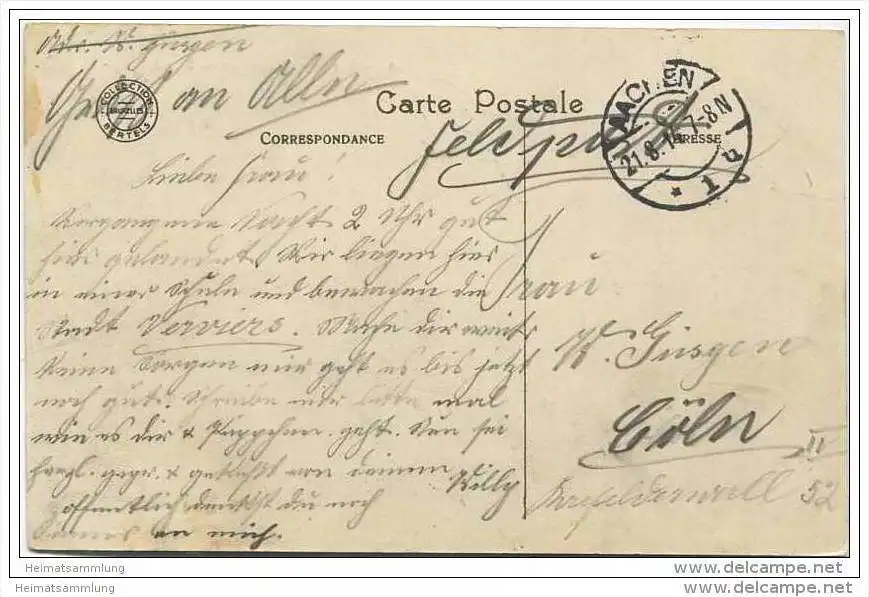 W. Güsgen
Gruß an Alle
COLLECTION
BRUXELLES
BERTELS
Carte Postale
CORRESPONDANCE
ADRESSE
Feldpost
AACHEN
21.8.14 7-8N
* 1 u
Liebe Frau!
Vergangene Nacht 2 Uhr gut
hier gelandet. Wir liegen hier
in einer Schule und bewachen die
Stadt Verviers. Mache dir weiter
keine Sorgen mir geht es bis jetzt
noch gut. Schreibe mir bitte mal
wie es dir & Püppchen geht. Nun sei
herzl. gegr. & geküßt von deinem
Willy
hoffentlich denkst du noch
an mich.
Frau
W. Güsgen
Cöln
Krefelderwall 52
II
Heimatsammlung
Heimatsammlung
www.delcampe.net
www.delcampe.net